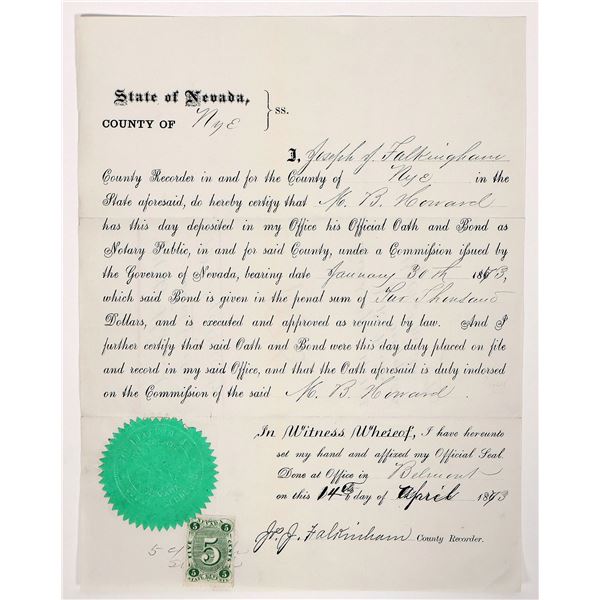 State of Nevada,
COUNTY OF Nye } ss.
I, Joseph J. Falkingham
County Recorder in and for the County of Nye in the
State aforesaid, do hereby certify that M. B. Howard
has this day deposited in my Office his Official Oath and Bond as
Notary Public, in and for said County, under a Commission issued by
the Governor of Nevada, bearing date January 30th 1873,
which said Bond is given in the penal sum of Two Thousand
Dollars, and is executed and approved as required by law. And I
further certify that said Oath and Bond were this day duly placed on file
and record in my said Office, and that the Oath aforesaid is duly indorsed
on the Commission of the said M. B. Howard.
In Witness Whereof, I have hereunto
set my hand and affixed my Official Seal.
Done at Office in Belmont
on this 14th day of April 1873
Jos. J. Falkinham County Recorder.
5 5
FIVE 5 CENTS
5 5